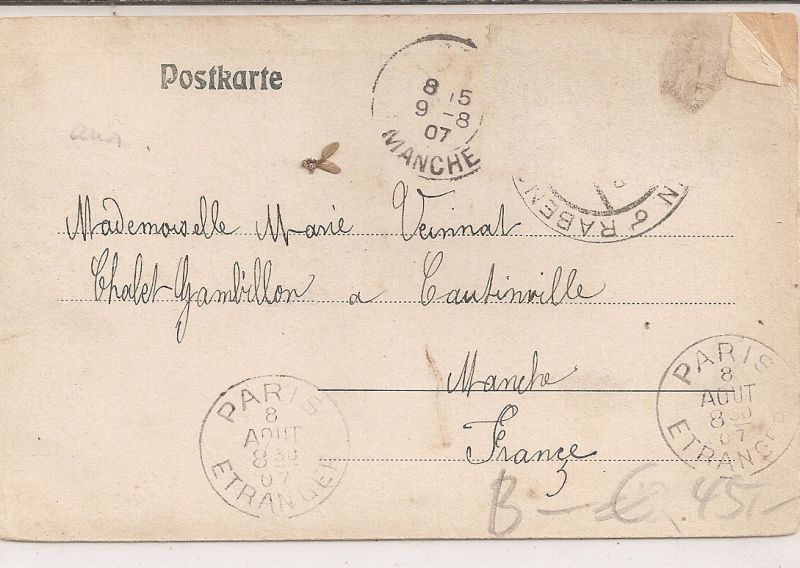 Postkarte
8 15
9 -8
07
MANCHE
N d RABEN
Mademoiselle Marie Veinnat
Chalet Gambillon a Coutinville
Manche
France
PARIS
8
AOUT
8 30
07
ETRANGER
PARIS
8
AOUT
8 30
07
ETRANGER
B - 45,-